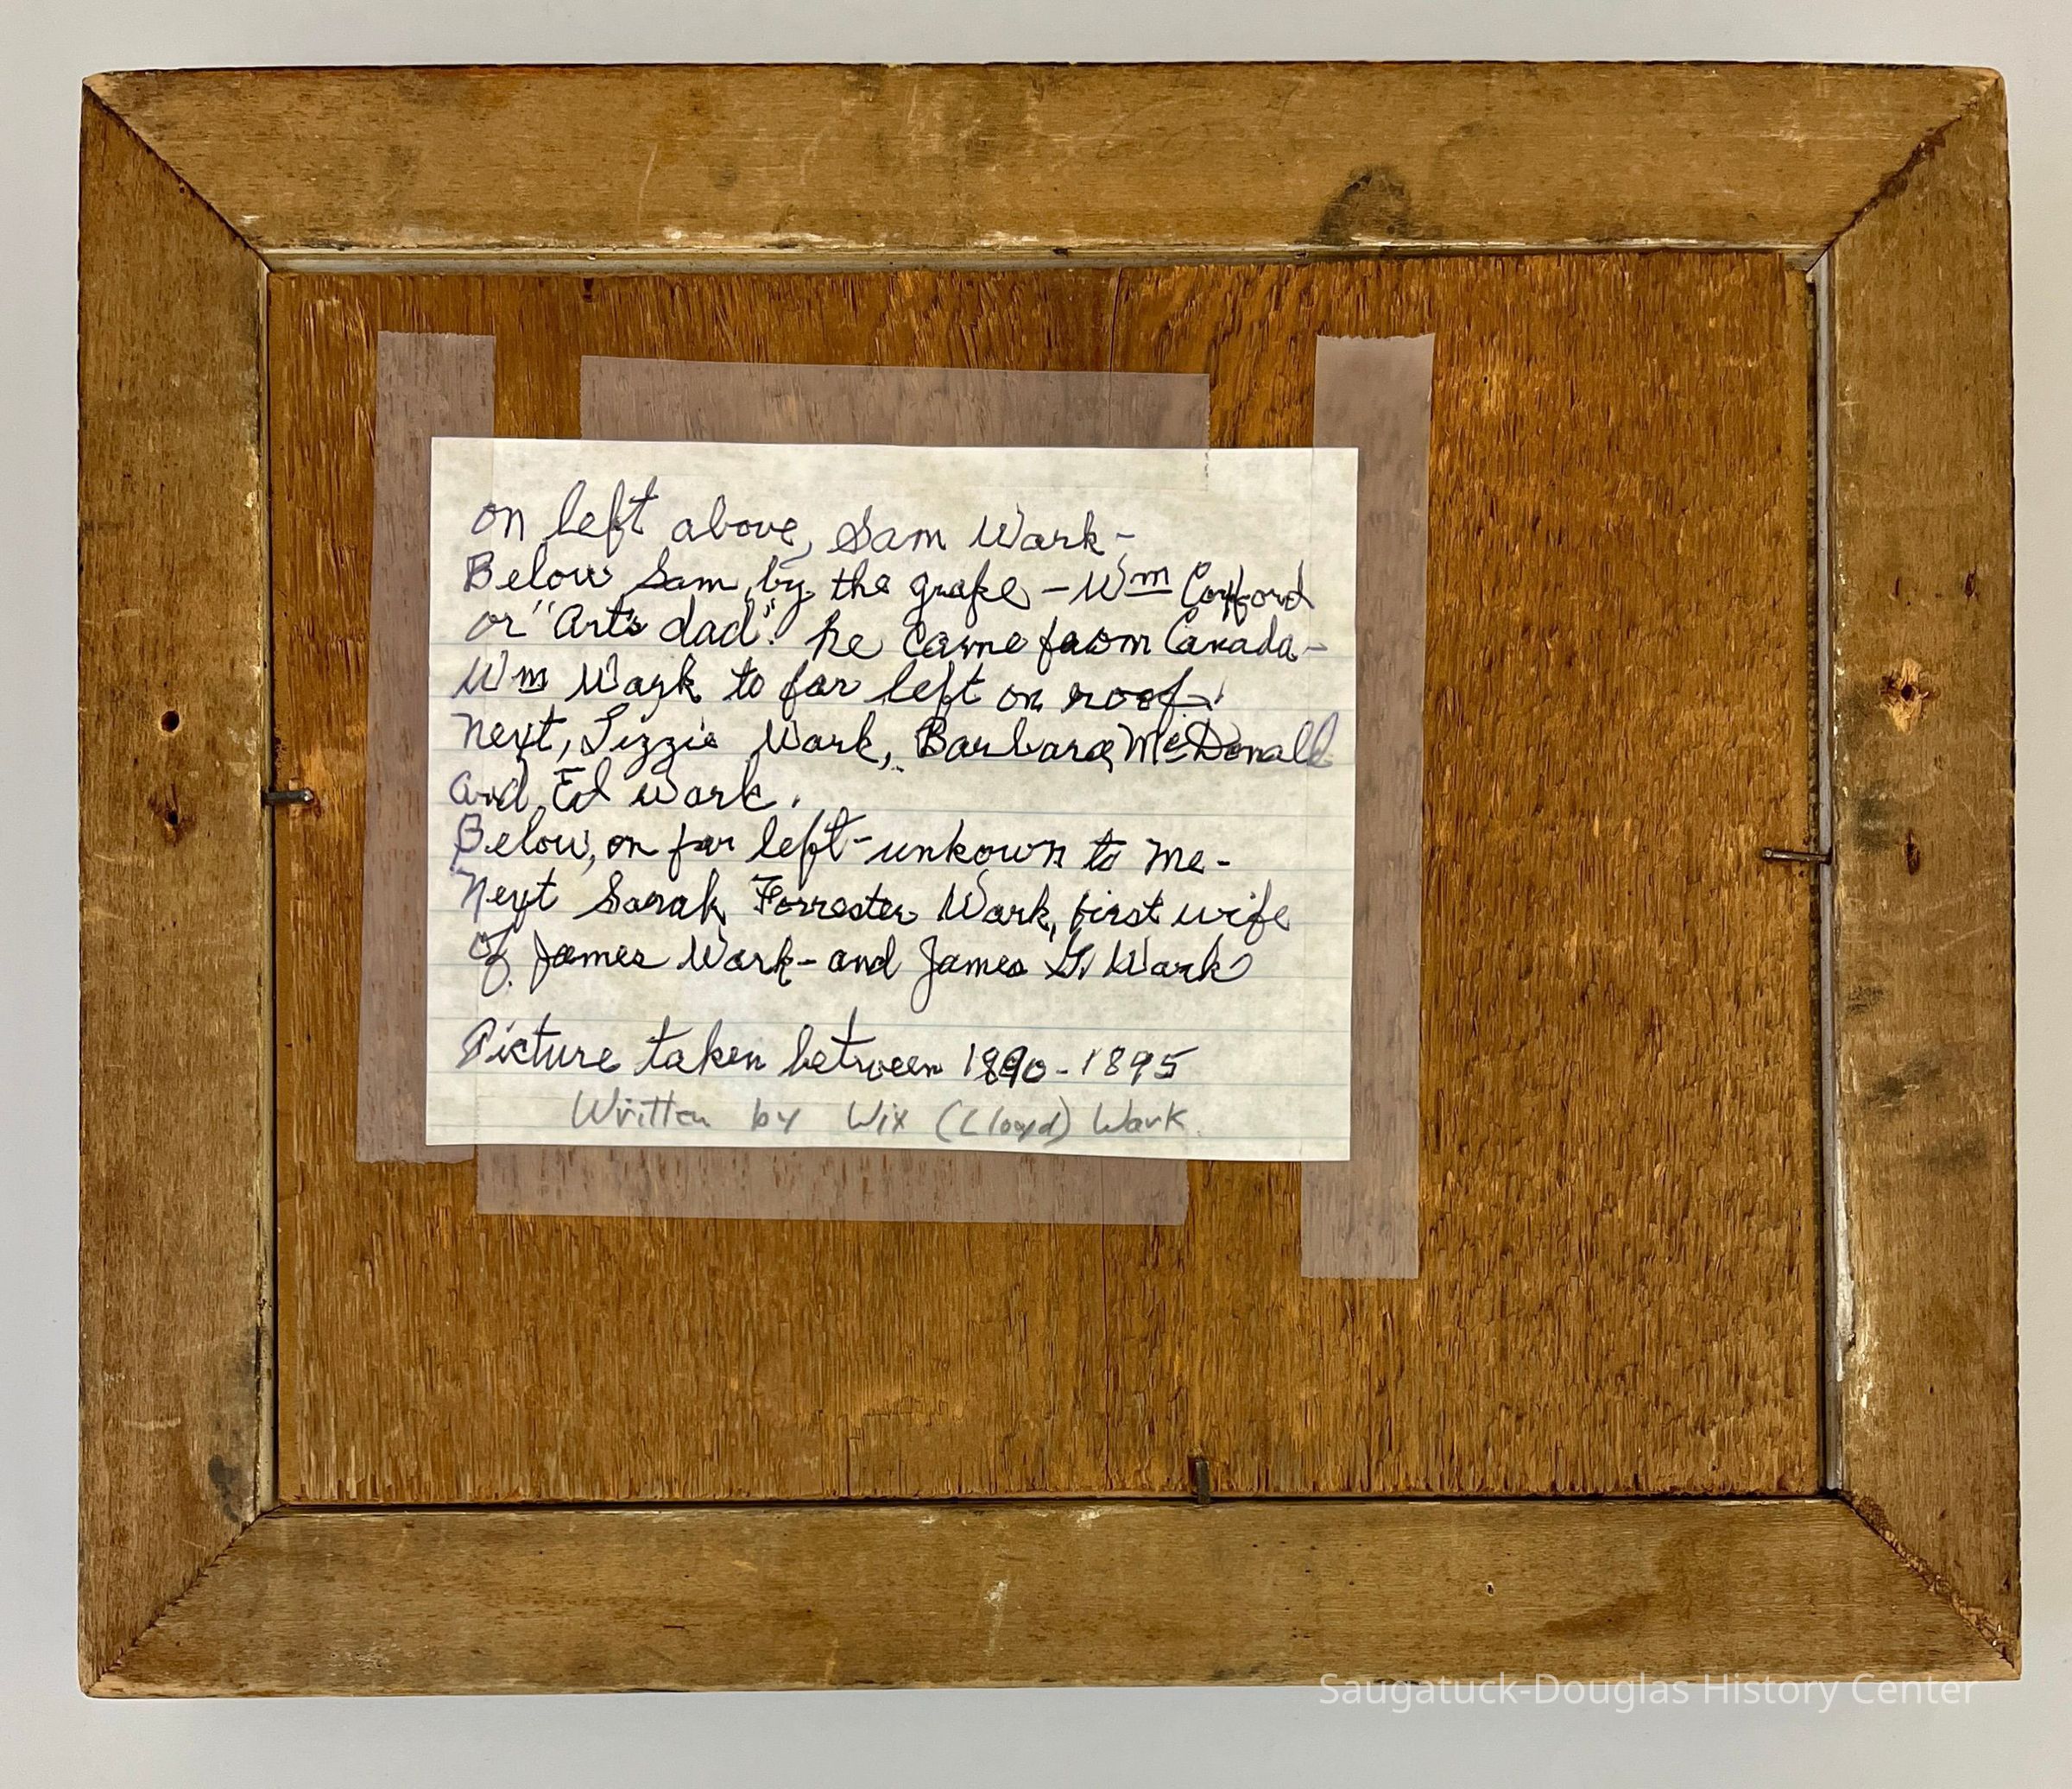 on left above, Sam Work-
Below Sam, by the grape - Wm
or "Art's dad". he came from Canada-
Wm Work to far left on roof.
Next, Lizzie Work, Barbara McDonald
and Ed Work.
Below, on far left - unkown to me-
Next Sarah Forrester Work, first wife
of James Work - and James G. Work
Picture taken between 1890-1895
Written by Wix (Lloyd) Work
Saugatuck-Douglas History Center